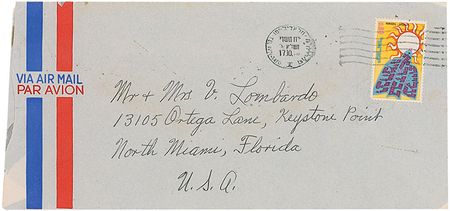 VIA AIR MAIL
PAR AVION
17.10
Mr + Mrs V. Lombardo
13105 Ortega Lane, Keystone Point
North Miami, Florida
U.S.A.